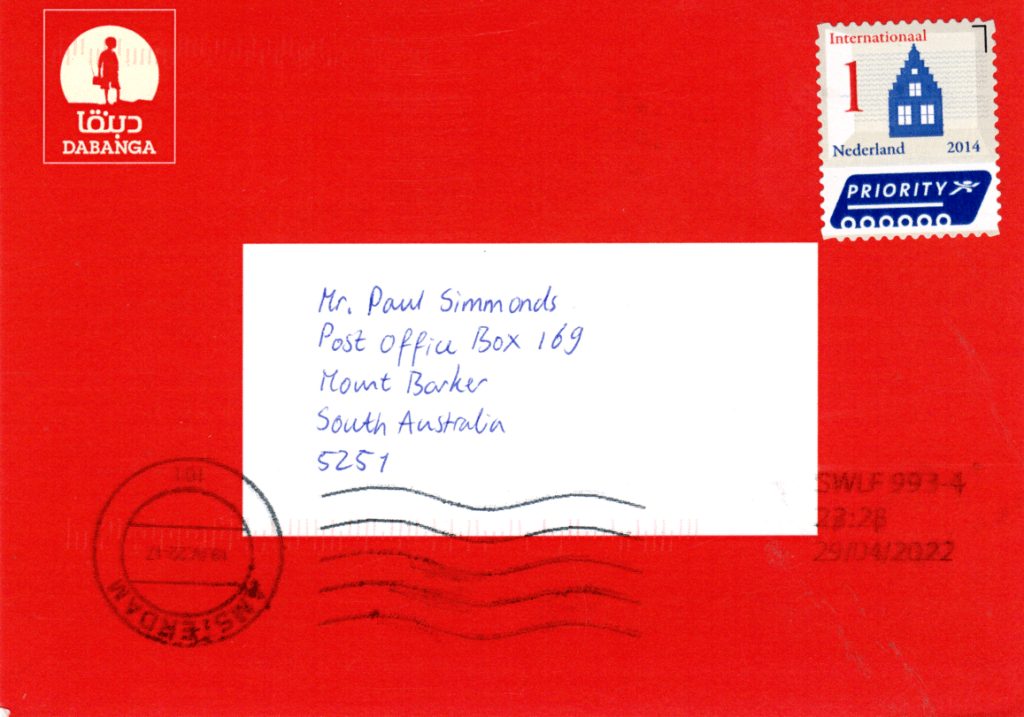 دبنقا
DABANGA
Internationaal
1
Nederland 2014
PRIORITY
Mr. Paul Simmonds
Post Office Box 169
Mount Barker
South Australia
5251
AMSTERDAM
SWLF 993-4
29/04/2022